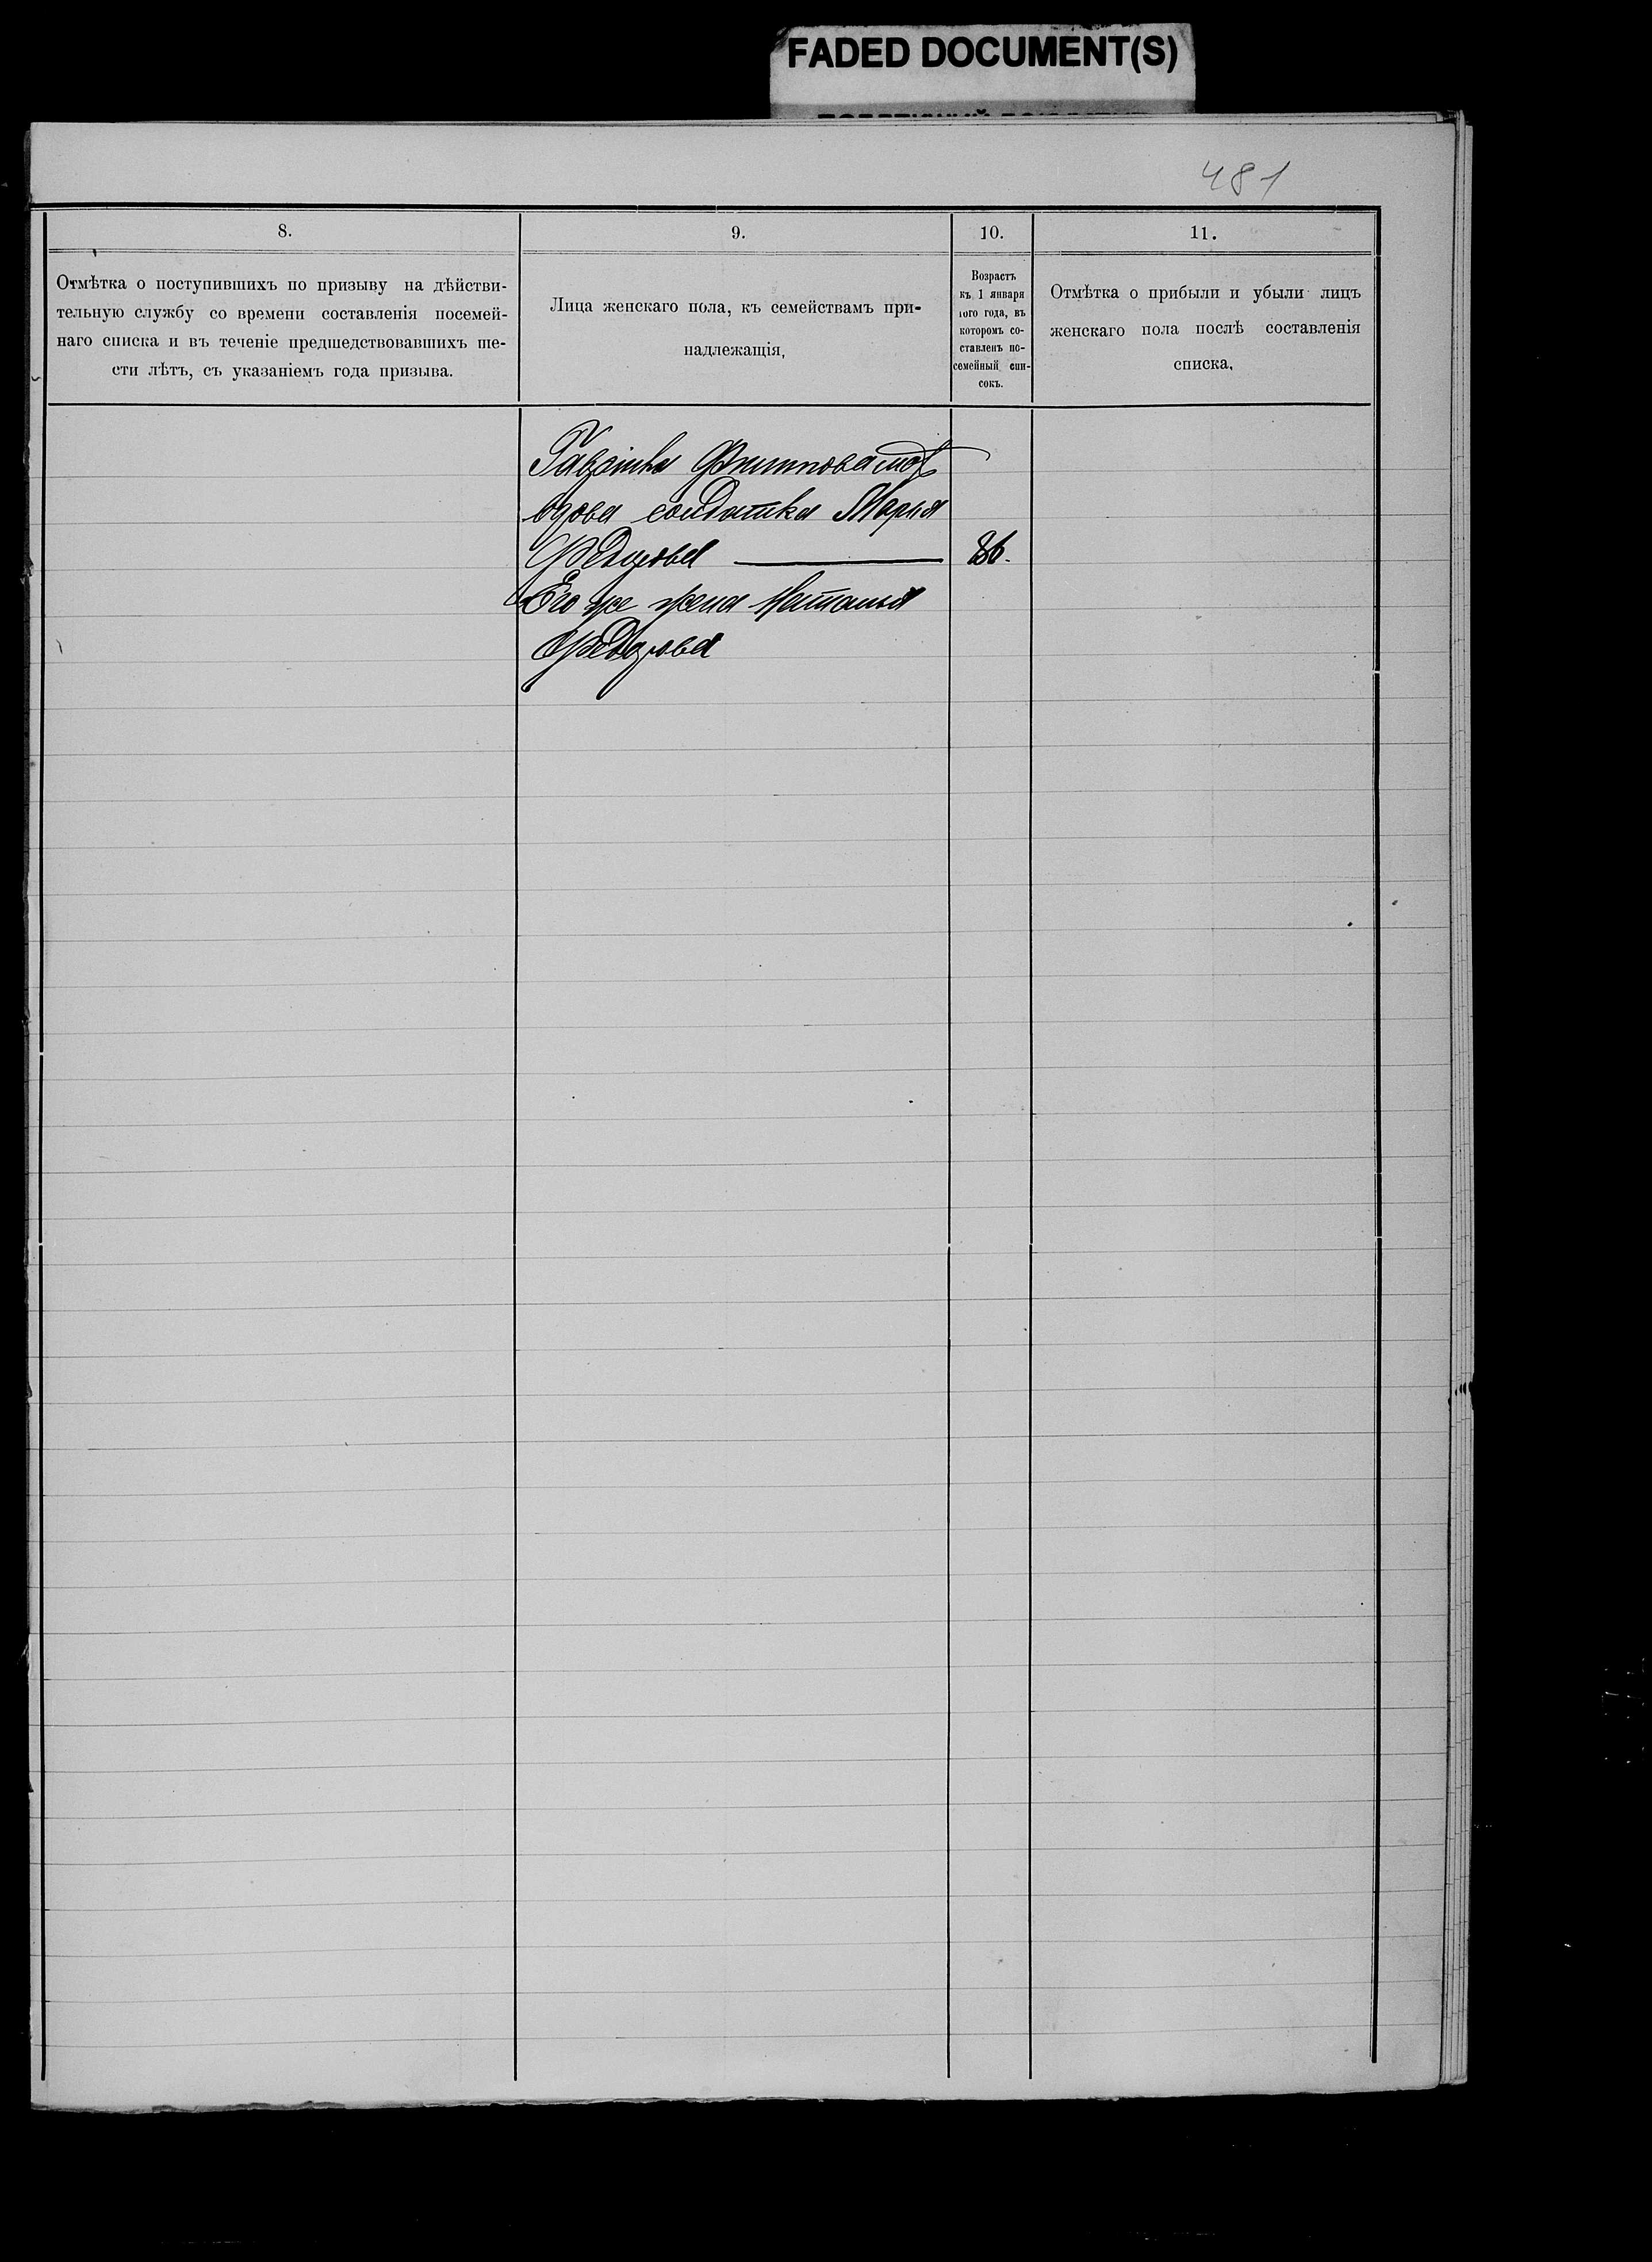 FADED DOCUMENT(S)
481
8.
9.
10.
11.
Отмѣтка о поступившихъ по призыву на дѣйстви-
тельную службу со времени составленія посемей-
наго списка и въ теченіе предшедствовавшихъ ше-
сти лѣтъ, съ указаніемъ года призыва.
Лица женскаго пола, къ семействамъ при-
надлежащія,
Возрастъ
къ 1 января
того года, въ
которомъ со-
ставленъ по-
семейный спи-
сокъ.
Отмѣтка о прибыли и убыли лицъ
женскаго пола послѣ составленія
списка,
Гаврила Филиппова
вдова солдатка Марья
Федорова
86.
Его же жена Наталья
Федорова